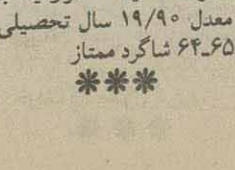 معدل ۱۹/۹۰ سال تحصیلی
۶۴ـ۶۵ شاگرد ممتاز
***